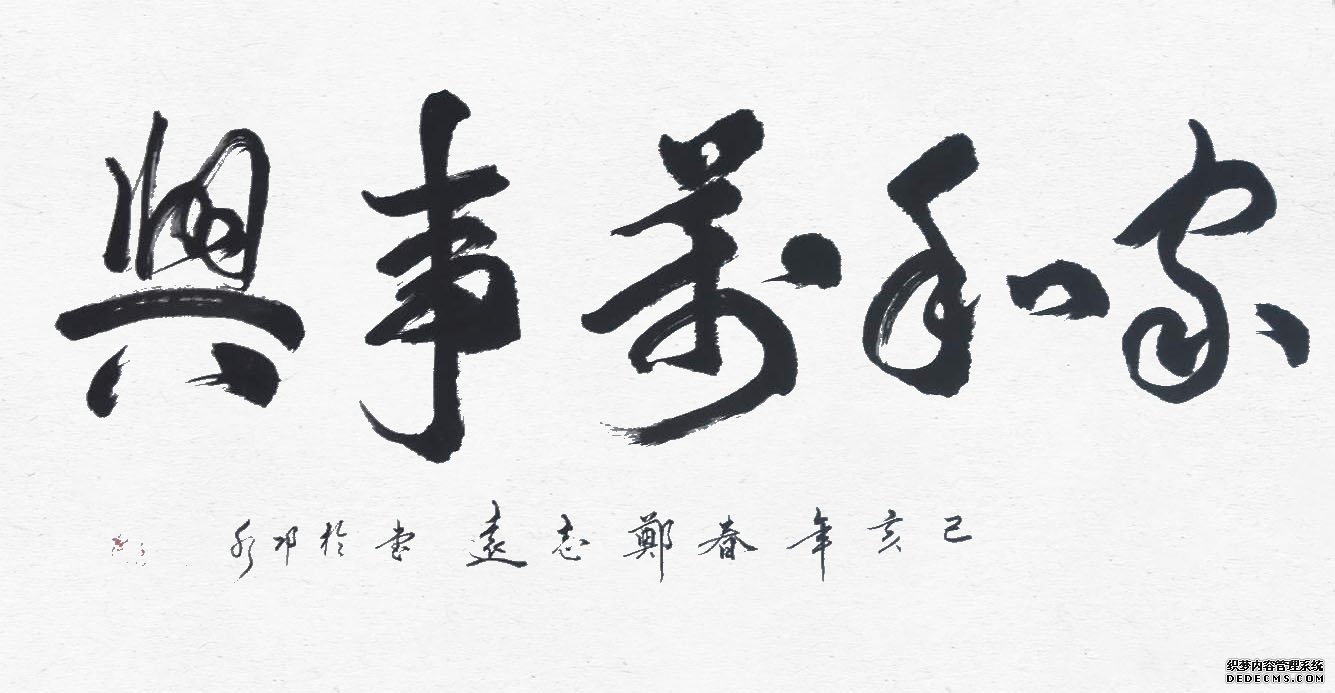 家和萬事興
己亥年春鄭志遠書於邛
织梦内容管理系统
DEDECMS.COM